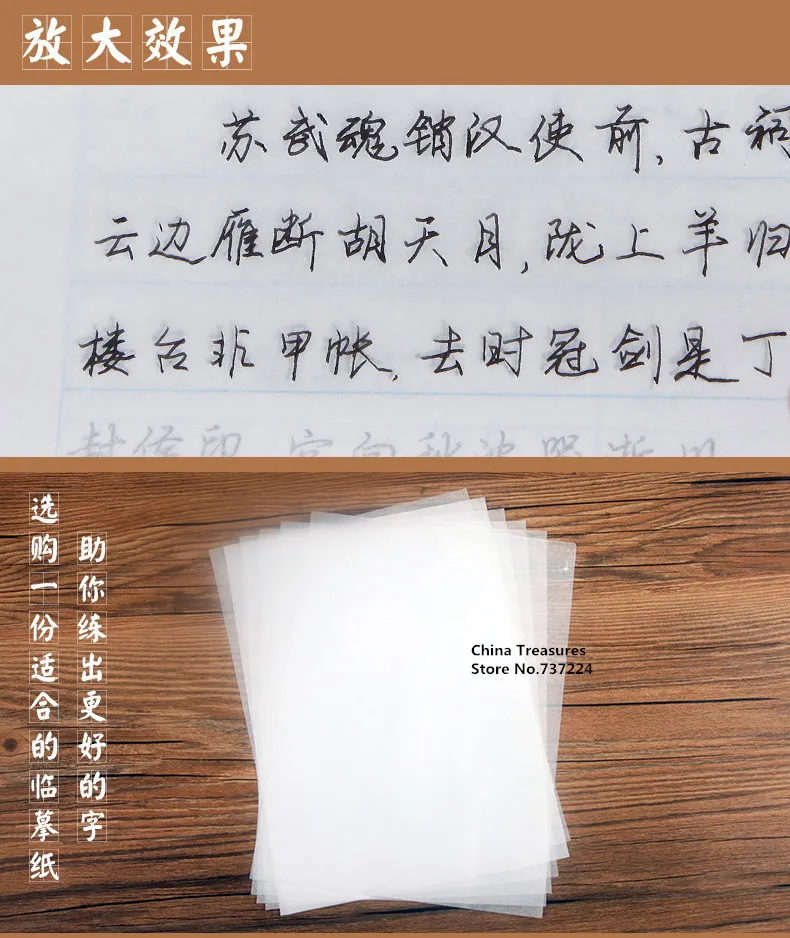 放大效果
苏武魂销汉使前,古
云边雁断胡天月,陇上羊归
楼台非甲帐,去时冠剑是丁
选购一份适合的临摹纸
助你练出更好的字
China Treasures
Store No.737224